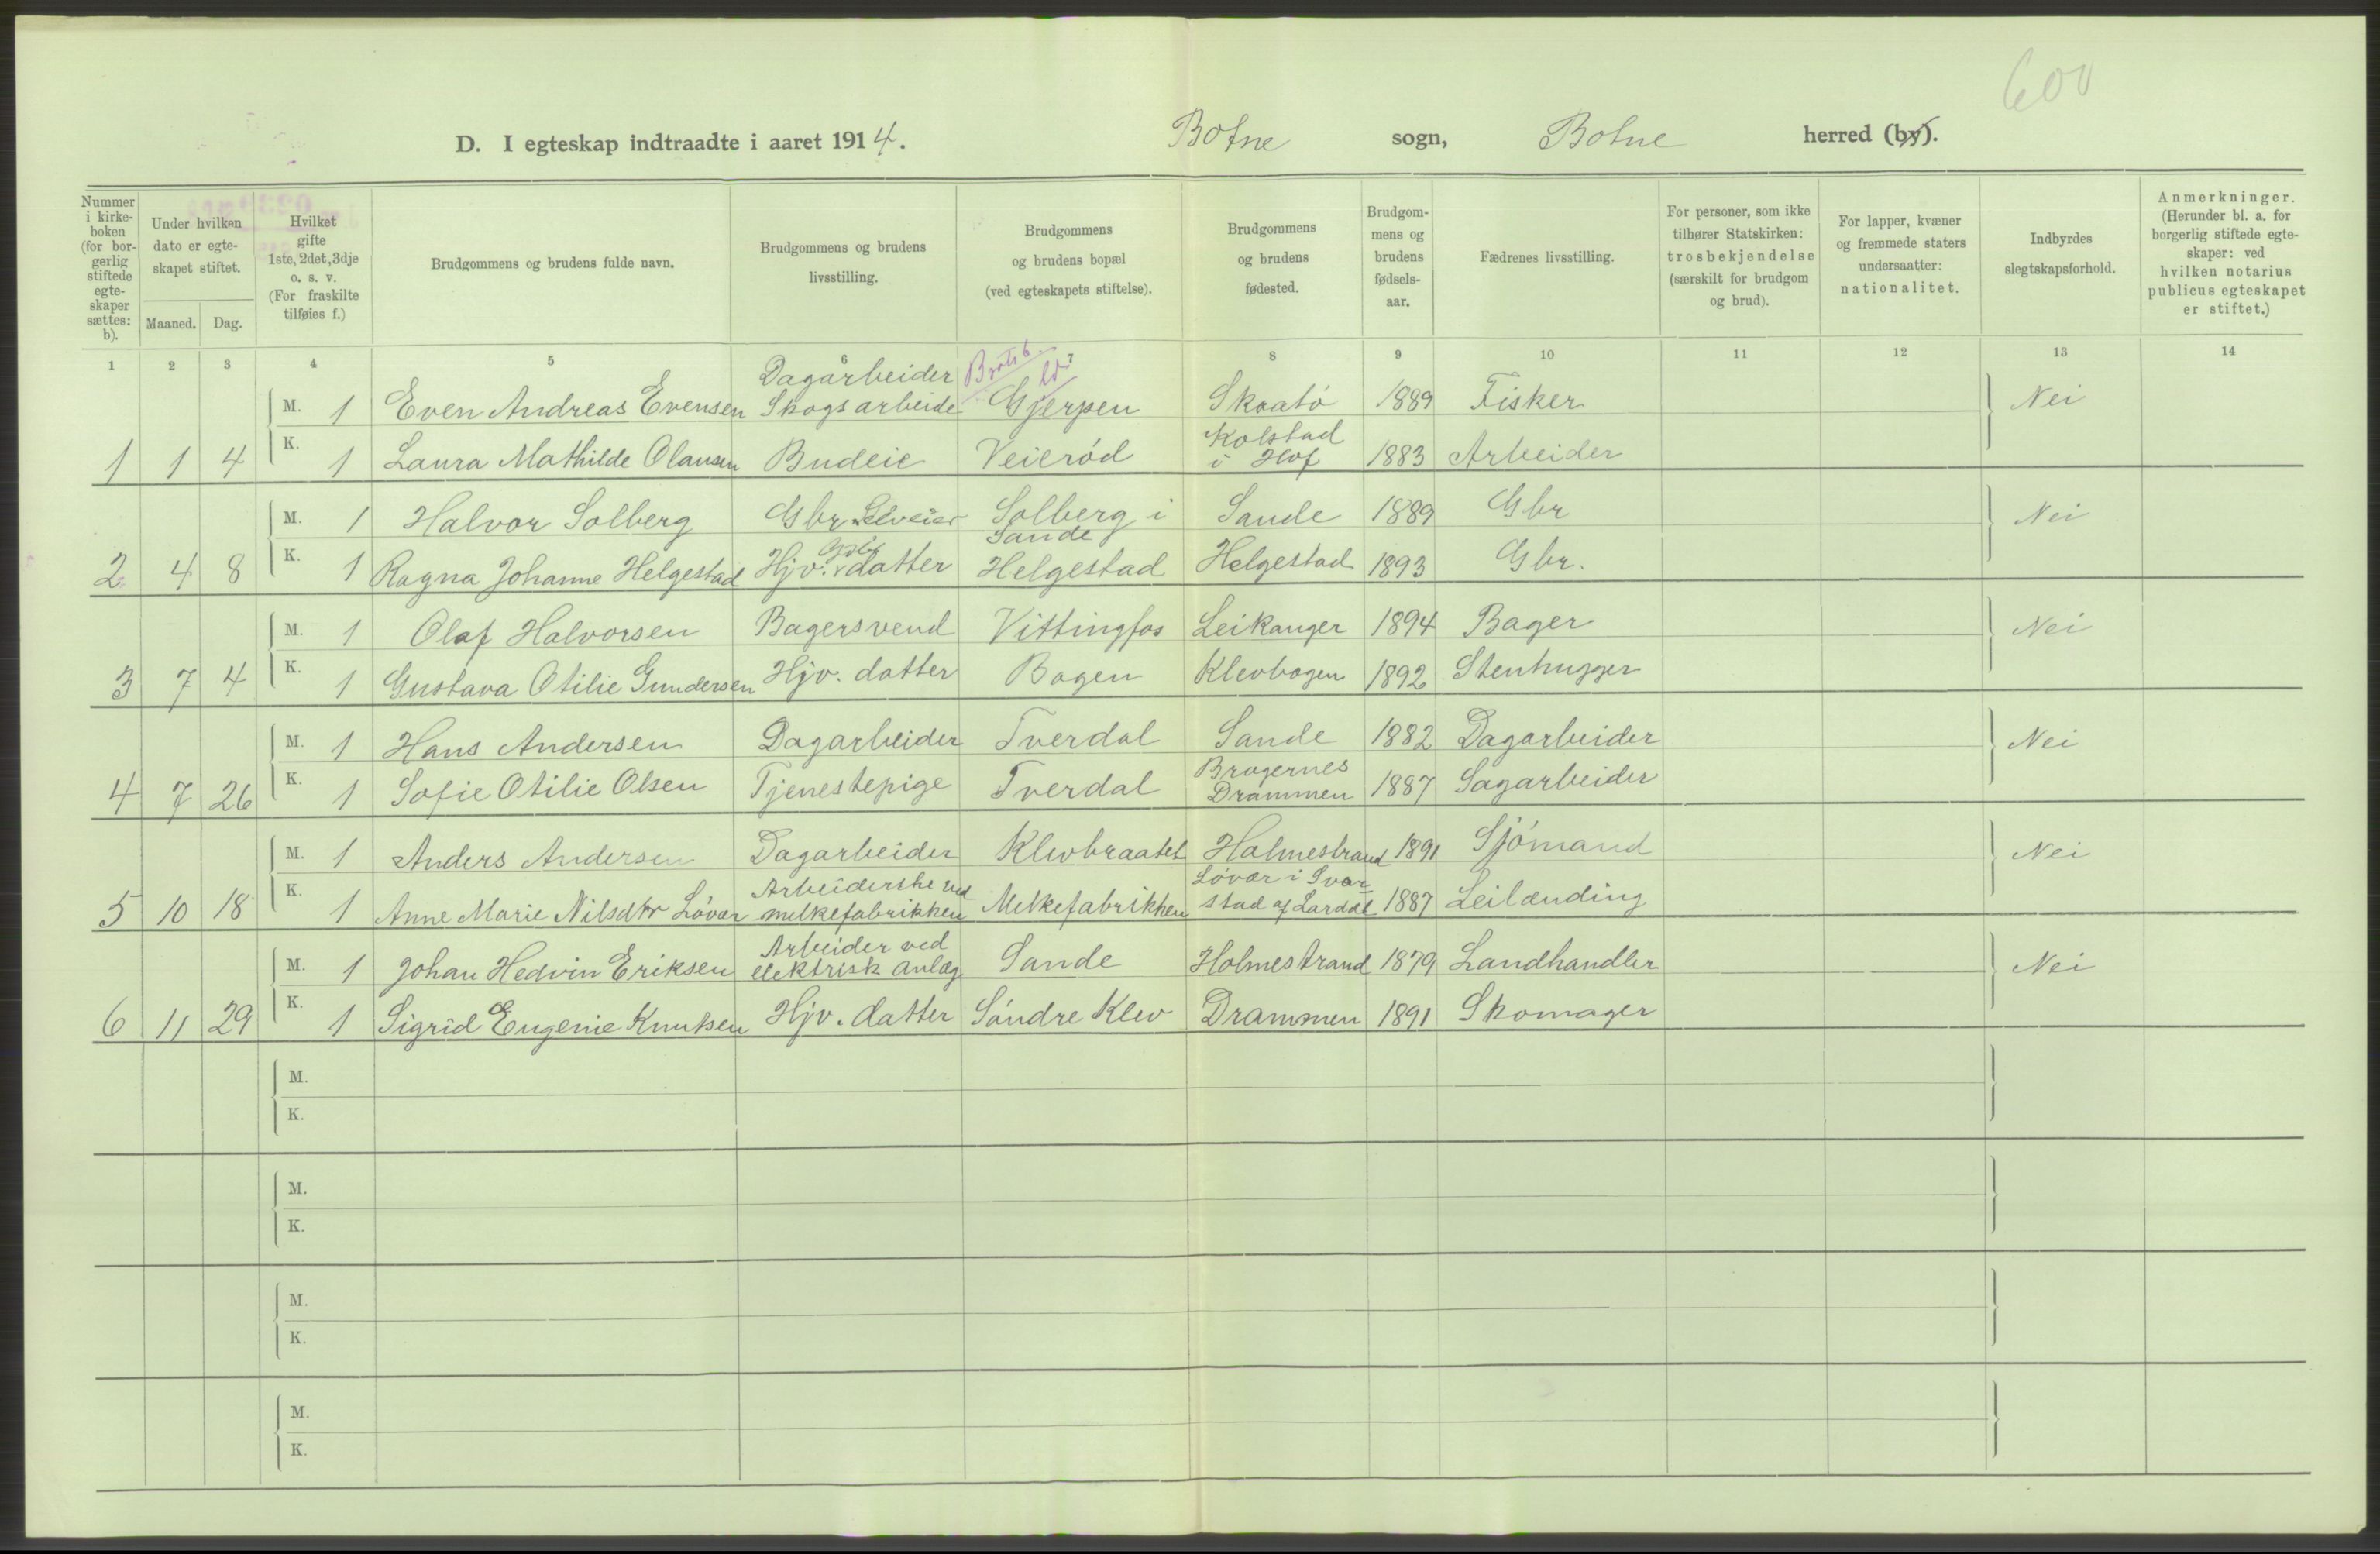 600
D. I egteskap indtraadte i aaret 1914. Botne sogn, Botne herred (by).
Nummer i kirke-boken (for bor-gerlig stiftede egte-skaper sættes: b).
Under hvilken dato er egte-skapet stiftet.
Maaned. Dag.
Hvilket gifte 1ste, 2det, 3dje o. s. v. (For fraskilte tilføies f.)
Brudgommens og brudens fulde navn.
Brudgommens og brudens livsstilling.
Brudgommens og brudens bopæl (ved egteskapets stiftelse).
Brudgommens og brudens fødested.
Brudgom-mens og brudens fødsels-aar.
Fædrenes livsstilling.
For personer, som ikke tilhører Statskirken: trosbekjendelse (særskilt for brudgom og brud).
For lapper, kvæner og fremmede staters undersaatter: nationalitet.
Indbyrdes slegtskapsforhold.
Anmerkninger. (Herunder bl. a. for borgerlig stiftede egte-skaper: ved hvilken notarius publicus egteskapet er stiftet.)
1 2 3 4 5 6 7 8 9 10 11 12 13 14
M. 1 Even Andreas Evensen Dagarbeider Skogsarbeide Gjerpen Skaatø 1889 Fisker Nei
1 1 4 K. 1 Laura Mathilde Olausen Budeie Veierød Kolstad i Hof 1883 Arbeider
M. 1 Halvor Solberg Gbr Selveier Solberg i Sande Sande 1889 Gbr Nei
2 4 8 K. 1 Ragna Johanne Helgestad Hjv. datter Helgestad Helgestad 1893 Gbr.
M. 1 Olaf Halvorsen Bagersvend Vittingfos Leikanger 1894 Bager Nei
3 7 4 K. 1 Gustava Otilie Gundersen Hjv. datter Bogen Klevbogen 1892 Stenhugger
M. 1 Hans Andersen Dagarbeider Tverdal Sande 1882 Dagarbeider Nei
4 7 26 K. 1 Sofie Otilie Olsen Tjenestepige Tverdal Bragernes Drammen 1887 Sagarbeider
M. 1 Anders Andersen Dagarbeider Klevbraatet Holmestrand 1891 Sjómand Nei
5 10 18 K. 1 Anne Marie Nilsdtr Løvær Arbeiderske ved melkefabrikken Melkefabrikken Løvær i Svar-stad af Lardal 1887 Leilænding
M. 1 Johan Hedvin Eriksen Arbeider ved elektrisk anlæg Sande Holmestrand 1879 Landhandler Nei
6 11 29 K. 1 Sigrid Eugenie Knutsen Hjv. datter Søndre Klev Drammen 1891 Skomager
M.
K.
M.
K.
M.
K.
M.
K.